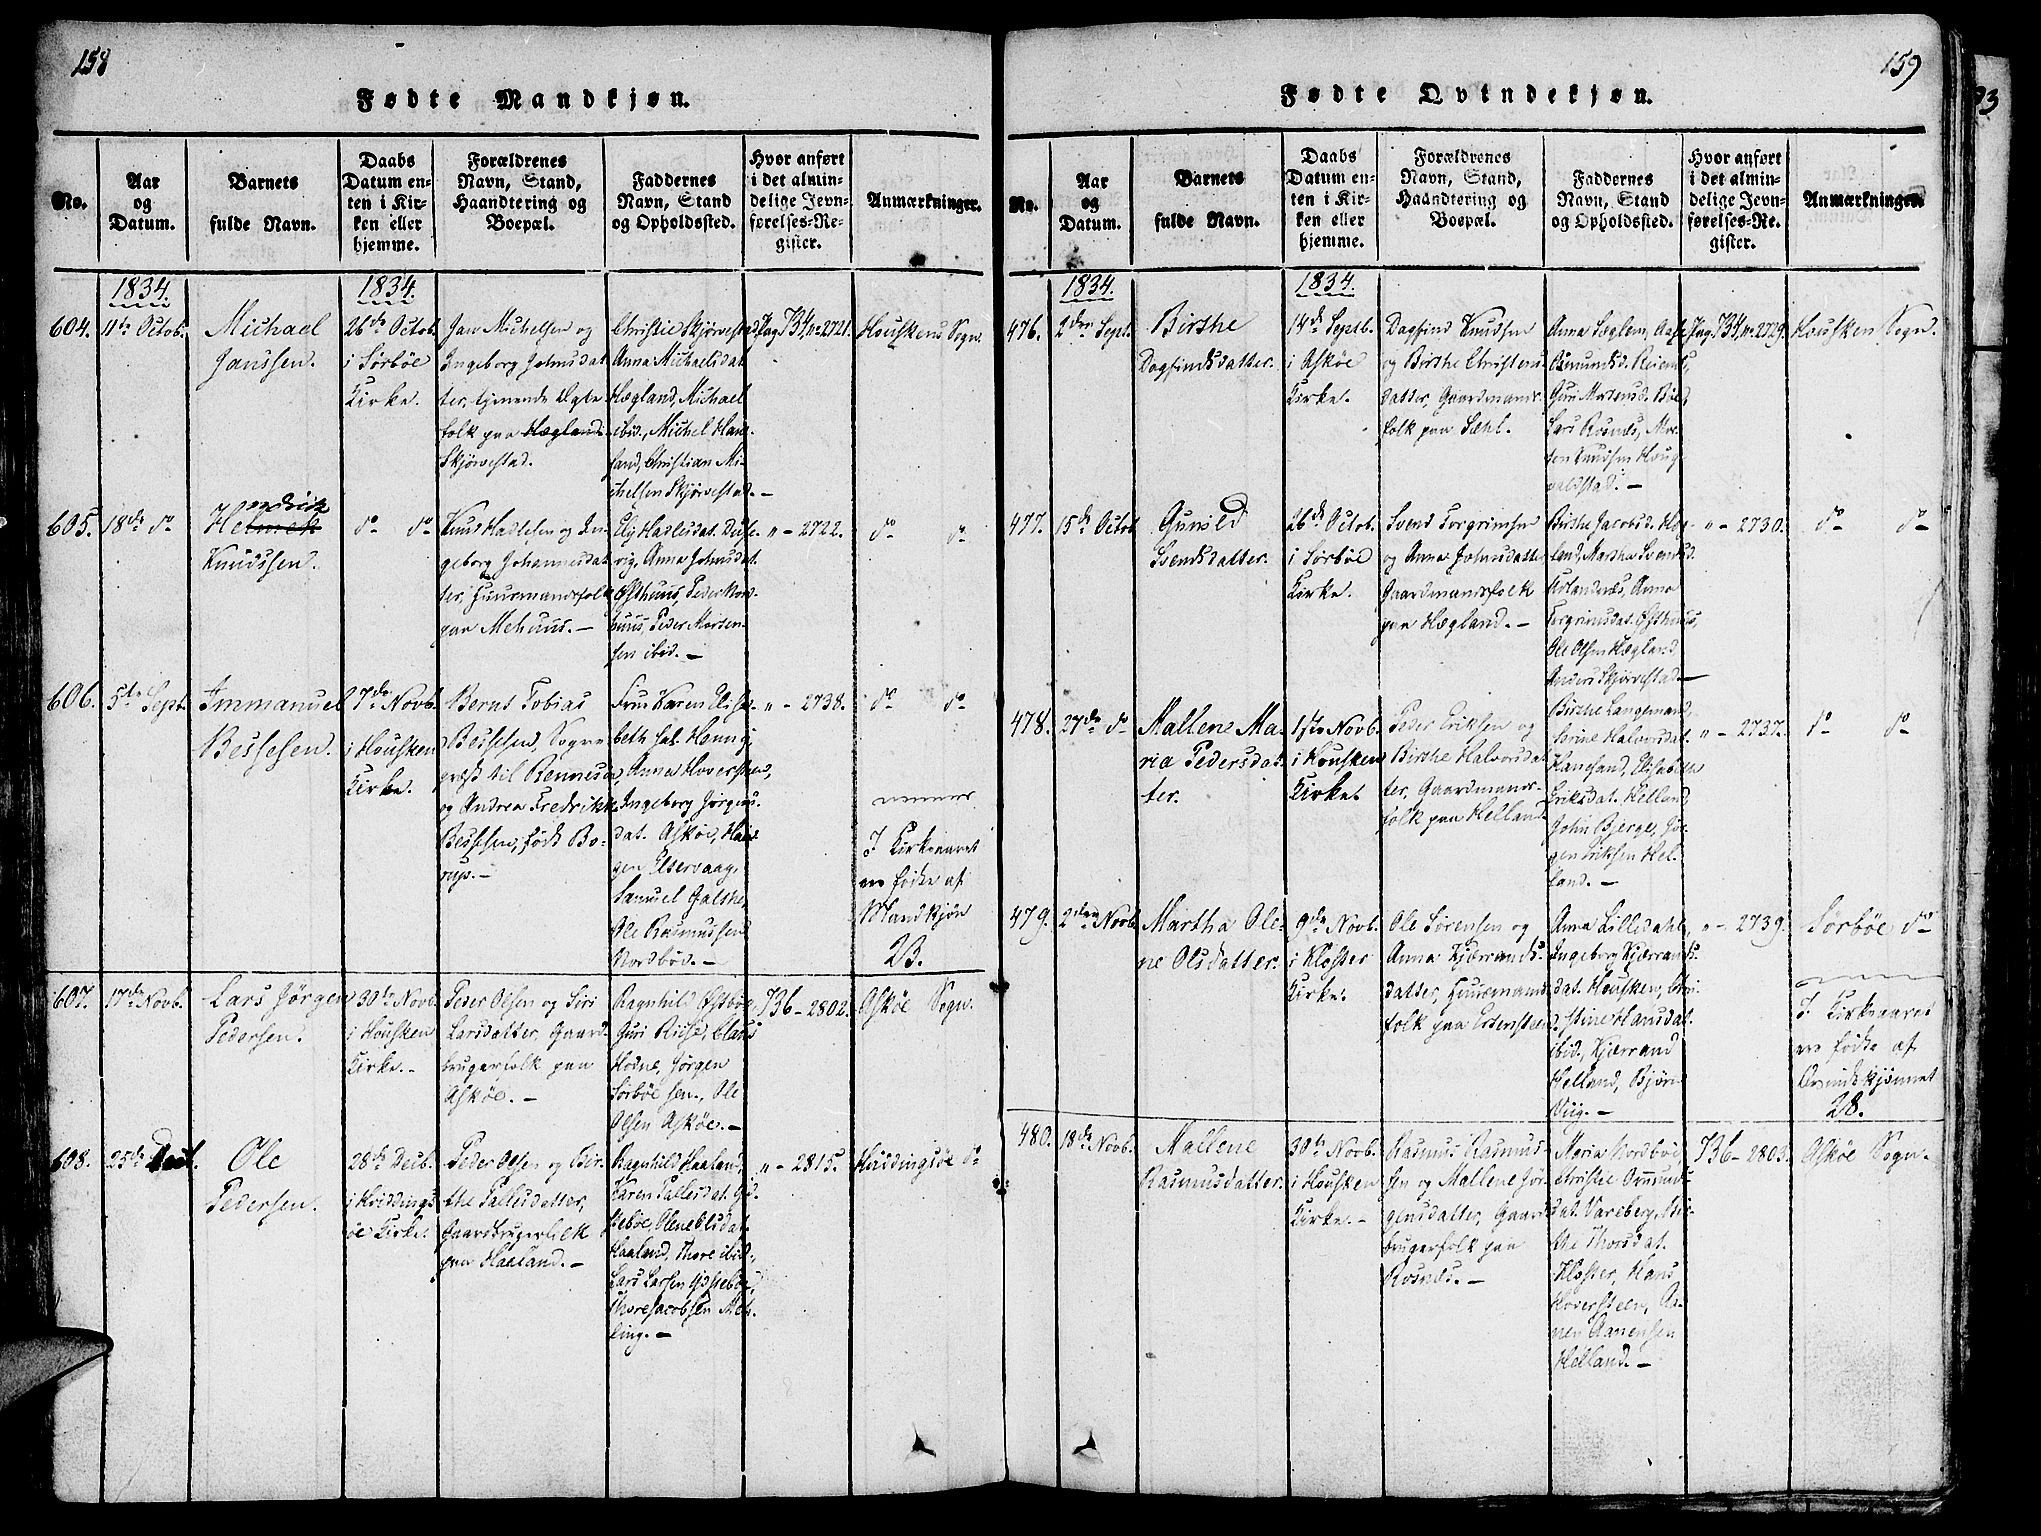 158
Fødte Mandkjøn.
No.
Aar
og
Datum.
Barnets
fulde Navn.
Daabs
Datum en-
ten i Kir-
ken eller
hjemme.
Forældrenes
Navn, Stand,
Haandtering og
Boepæl.
Faddernes
Navn, Stand
og Opholdssted.
Hvor anført
i det almin-
delige Jevn-
førelses-Re-
gister.
Anmærkninger.
1834.
1834.
604.
11te Octob.
Michael
Janssen.
26de Octob.
i Sørbøe
Kirke.
Jan Michelsen og
Ingeborg Johnsdat
ter, tjenende Ægte
folk paa Hægland
Skjørvestad.
Christie Skjørvestad,
Anna Michaelsdat
Hægland, Michael
ibid., Michel Hane-
sand, Christian Mi-
chelsen Skjørvestad.-
Pag. 734, No 2721.
Houskens Sogn.
605.
18de do
Helmek
Hendrik
Knudssen.
do do
Knud Hadlesen og In-
geborg Johannesdat
ter, Huusmandsfolk
paa Mehuus.-
Ely Hadlesdat.
Anna Johnsdat.
Østhuus, Peder
huus, Peder Morten-
sen ibid.-
" - 2722.
do do
606.
5te Sept.
Immanuel
Bessesen.
7de Novb.
i Housken
Kirke.
Bernt Tobias
Bessesen, Sogne
præst til Rennesøe,
og Andrea Fredrikke
Bessesen, født Bo-
rup.-
Frue Karen Elisa-
beth sal. Hennig,
Anna Hoversteen,
Ingeborg Jørgens-
dat. Askøe,
gen Eltervaag,
Samuel Galthe,
Ole Rasmussen
Nordbøe.-
" - 2738.
do do
I Kirkeaaret
ere fødte af
Mandkjøn
23.
607.
17de Novb.
Lars Jörgen
Pedersen.
30te Novb.
i Housken
Kirke.-
Peder Olsen og Siri
Larsdatter, Gaard-
brugerfolk paa
Askøe.-
Ragnhild Østbøe,
Guri Riise, Claus
Hodne, Jørgen
Sørbøe sen., Ole
Olsen Askøe.-
736 - 2802.
Askøe Sogn.
608.
25de Decb.
Ole
Pedersen.
28de Decb.
i Hviddings
øe Kirke.
Peder Olsen og Bir-
the Tallesdatter,
Gaardbrugerfolk
paa Haaland.-
Ragnhild Haaland,
Karen Tallesdat. Gid-
skebøe, Olene Olsdat.
Haaland, Thore ibid.,
Lars Larsen Gidskebøe,
Thore Jacobsen Meh-
ling.-
" - 2815.
Hviddingsøe do
159
Fødte Qvindekjøn.
No.
Aar
og
Datum.
Barnets
fulde Navn.
Daabs
Datum en-
ten i Kir-
ken eller
hjemme.
Forældrenes
Navn, Stand,
Haandtering og
Boepæl.
Faddernes
Navn, Stand
og Opholdssted.
Hvor anført
i det almin-
delige Jevn-
førelses-Re-
gister.
Anmærkninger.
1834.
1834.
476.
2den Septb.
Birthe
Dagfindsdatter.
14de Septb.
i Askøe
Kirke.
Dagfind Knudsen
og Birthe Christens-
datter, Gaardmands-
folk paa Sæhl.
Anna
Asmundsd.
Guri Mortensd. Bøe,
Lars Rosnæs, Mor-
ten Knudsen Houg-
valdstad.-
Pag. 734, No 2729.
Housken Sogn.
477.
15de Octob.
Gunild
Svendsdatter.
26de Octob.
i Sørbøe
Kirke.
Svend Torgrimsen
og Anna Johnsdatter
Gaardmandsfolk
paa Hægland.-
Birthe Jacobsd. Hæg-
land, Martha Svendsd.
Anna
Torgrimsdat. Østhuus,
Ole Olsen Hægland,
Anders Skjørvestad.-
" - 2730.
do do
478.
27de do
Mallene Ma-
ria Pedersdat-
ter.
1ste Novb.
i Housken
Kirke.
Peder Eriksen og
Birthe Halvorsdat
ter, Gaardmands-
folk paa Helland.
Birthe Langeland,
Serine Halvorsdat.
Hanesand, Elisabeth
Eriksdat. Helland,
John Bjerge, Jør-
gen Eriksen Hel-
land.-
" - 2737.
do do
479.
2den Novb.
Martha Ole-
ne Olsdatter.
9de Novb.
i Kloster
Kirke.
Ole Sørensen og
Anna Kjærrands-
datter, Huusmands
folk paa Ertensteen.
Anna Lilledahl,
Ingeborg Kjærrands-
dat. Housken, Chri-
stine Hansdat.
ibid., Kjærrand
Helland, Bjørn
Viig.-
" - 2739.
Sørbøe do
I Kirkeaaret
ere fødte af
Qvindekjønnet
28.
480.
18de Novb.
Mallene
Rasmusdatter.
30te Novb.
i Housken
Kirke.-
Rasmus Rasmus-
sen og Mallene Jør-
gensdatter, Gaard
brugerfolk paa
Rosnæs.-
Maria Nordbøe,
Christie Ommund-
dat. Vareberg, Bir-
the Thorsdat.
Kloster, Hans
Hoversteen, Aa-
nen Aanensen
Helland.-
736 - 2803.
Askøe Sogn.
93